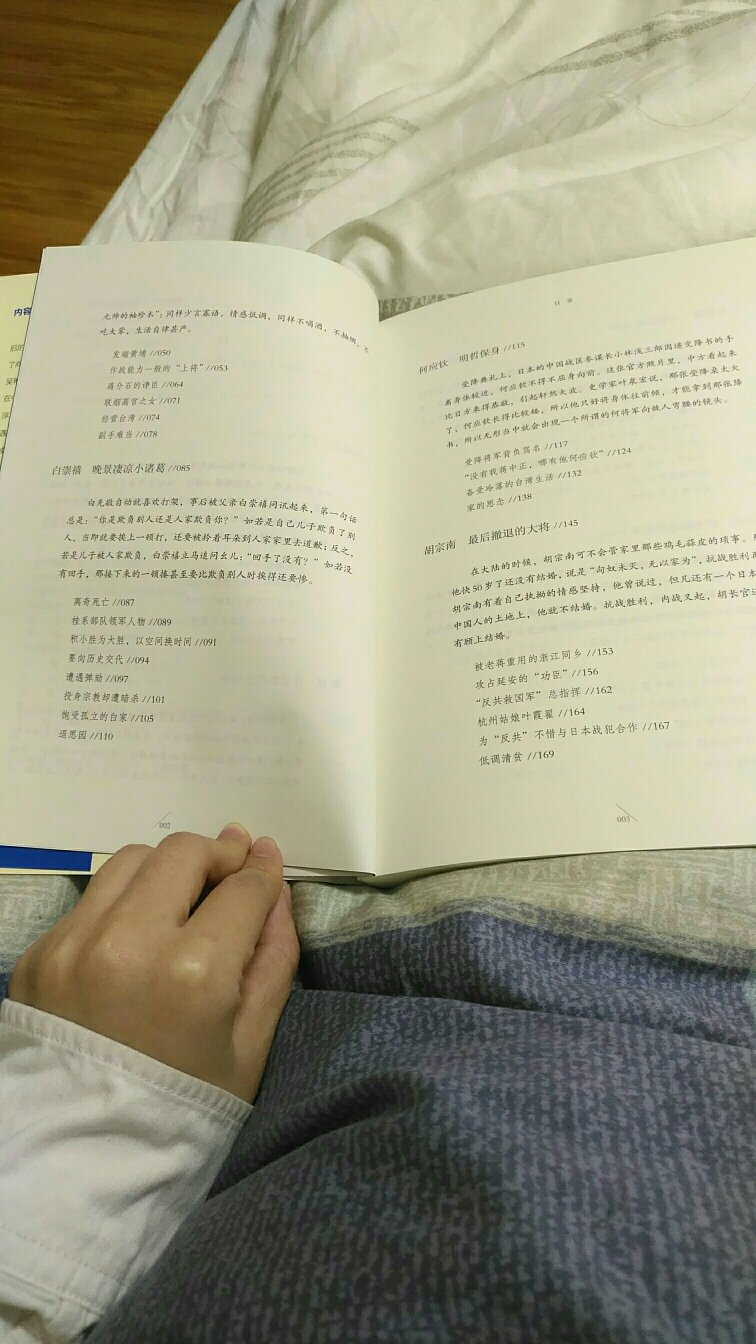 内容
元帅的袖珍本”；同样少言寡语，情感低调，同样不喝酒、不抽烟、不
吃大荤，生活自律甚严。
发端黄埔 //050
作战能力一般的“上将” //053
蒋介石的诤臣 //064
联姻高官之女 //071
经营台湾 //074
副手难当 //078
白崇禧 晚景凄凉小诸葛 //085
白先敬自幼就喜欢打架，事后被父亲白崇禧问讯起来，第一句话
总是：“你是欺负别人还是人家欺负你？”如若是自己儿子欺负了别
人，当即就要挨上一顿打，还要被拎着耳朵到人家家里去道歉；反之，
若是儿子被人家欺负，白崇禧立马追问幺儿：“回手了没有？”如若没
有回手，那接下来的一顿揍甚至要比欺负别人时挨得还要惨。
离奇死亡 //087
桂系部队领军人物 //089
积小胜为大胜，以空间换时间 //091
要向历史交代 //094
遭遇弹劾 //097
投身宗教却遭暗杀 //101
饱受孤立的白家 //105
退思园 //110
002
目 录
何应钦 明哲保身 //115
受降典礼上，日本的中国战区参谋长小林浅三郎因递交降书的手
离身体较近，何应钦不得不屈身向前。这张官方照片里，中方看起来
比日方来得恭敬，引起轩然大波。史学家叶泉宏说，那张受降桌太大
了，何应钦长得比较矮，所以他只好将身体往前倾，才能拿到那张降
书，所以无形当中就会出现一个所谓的何将军向敌人弯腰的镜头。
受降将军背负骂名 //117
“没有我蒋中正，哪有他何应钦” //124
备受冷落的台湾生活 //132
家的思念 //138
胡宗南 最后撤退的大将 //145
在大陆的时候，胡宗南可不会管家里那些鸡毛蒜皮的琐事。
他快50岁了还没有结婚，说是“匈奴未灭，无以家为”，抗战胜利再
胡宗南有着自己执拗的情感坚持，他曾说过，但凡还有一个日本
中国人的土地上，他就不结婚。抗战胜利，内战又起，胡长官
有顾上结婚。
被老蒋重用的浙江同乡 //153
攻占延安的“功臣” //156
“反共救国军”总指挥 //162
杭州姑娘叶霞翟 //164
为“反共”不惜与日本战犯合作 //167
低调清贫 //169
003